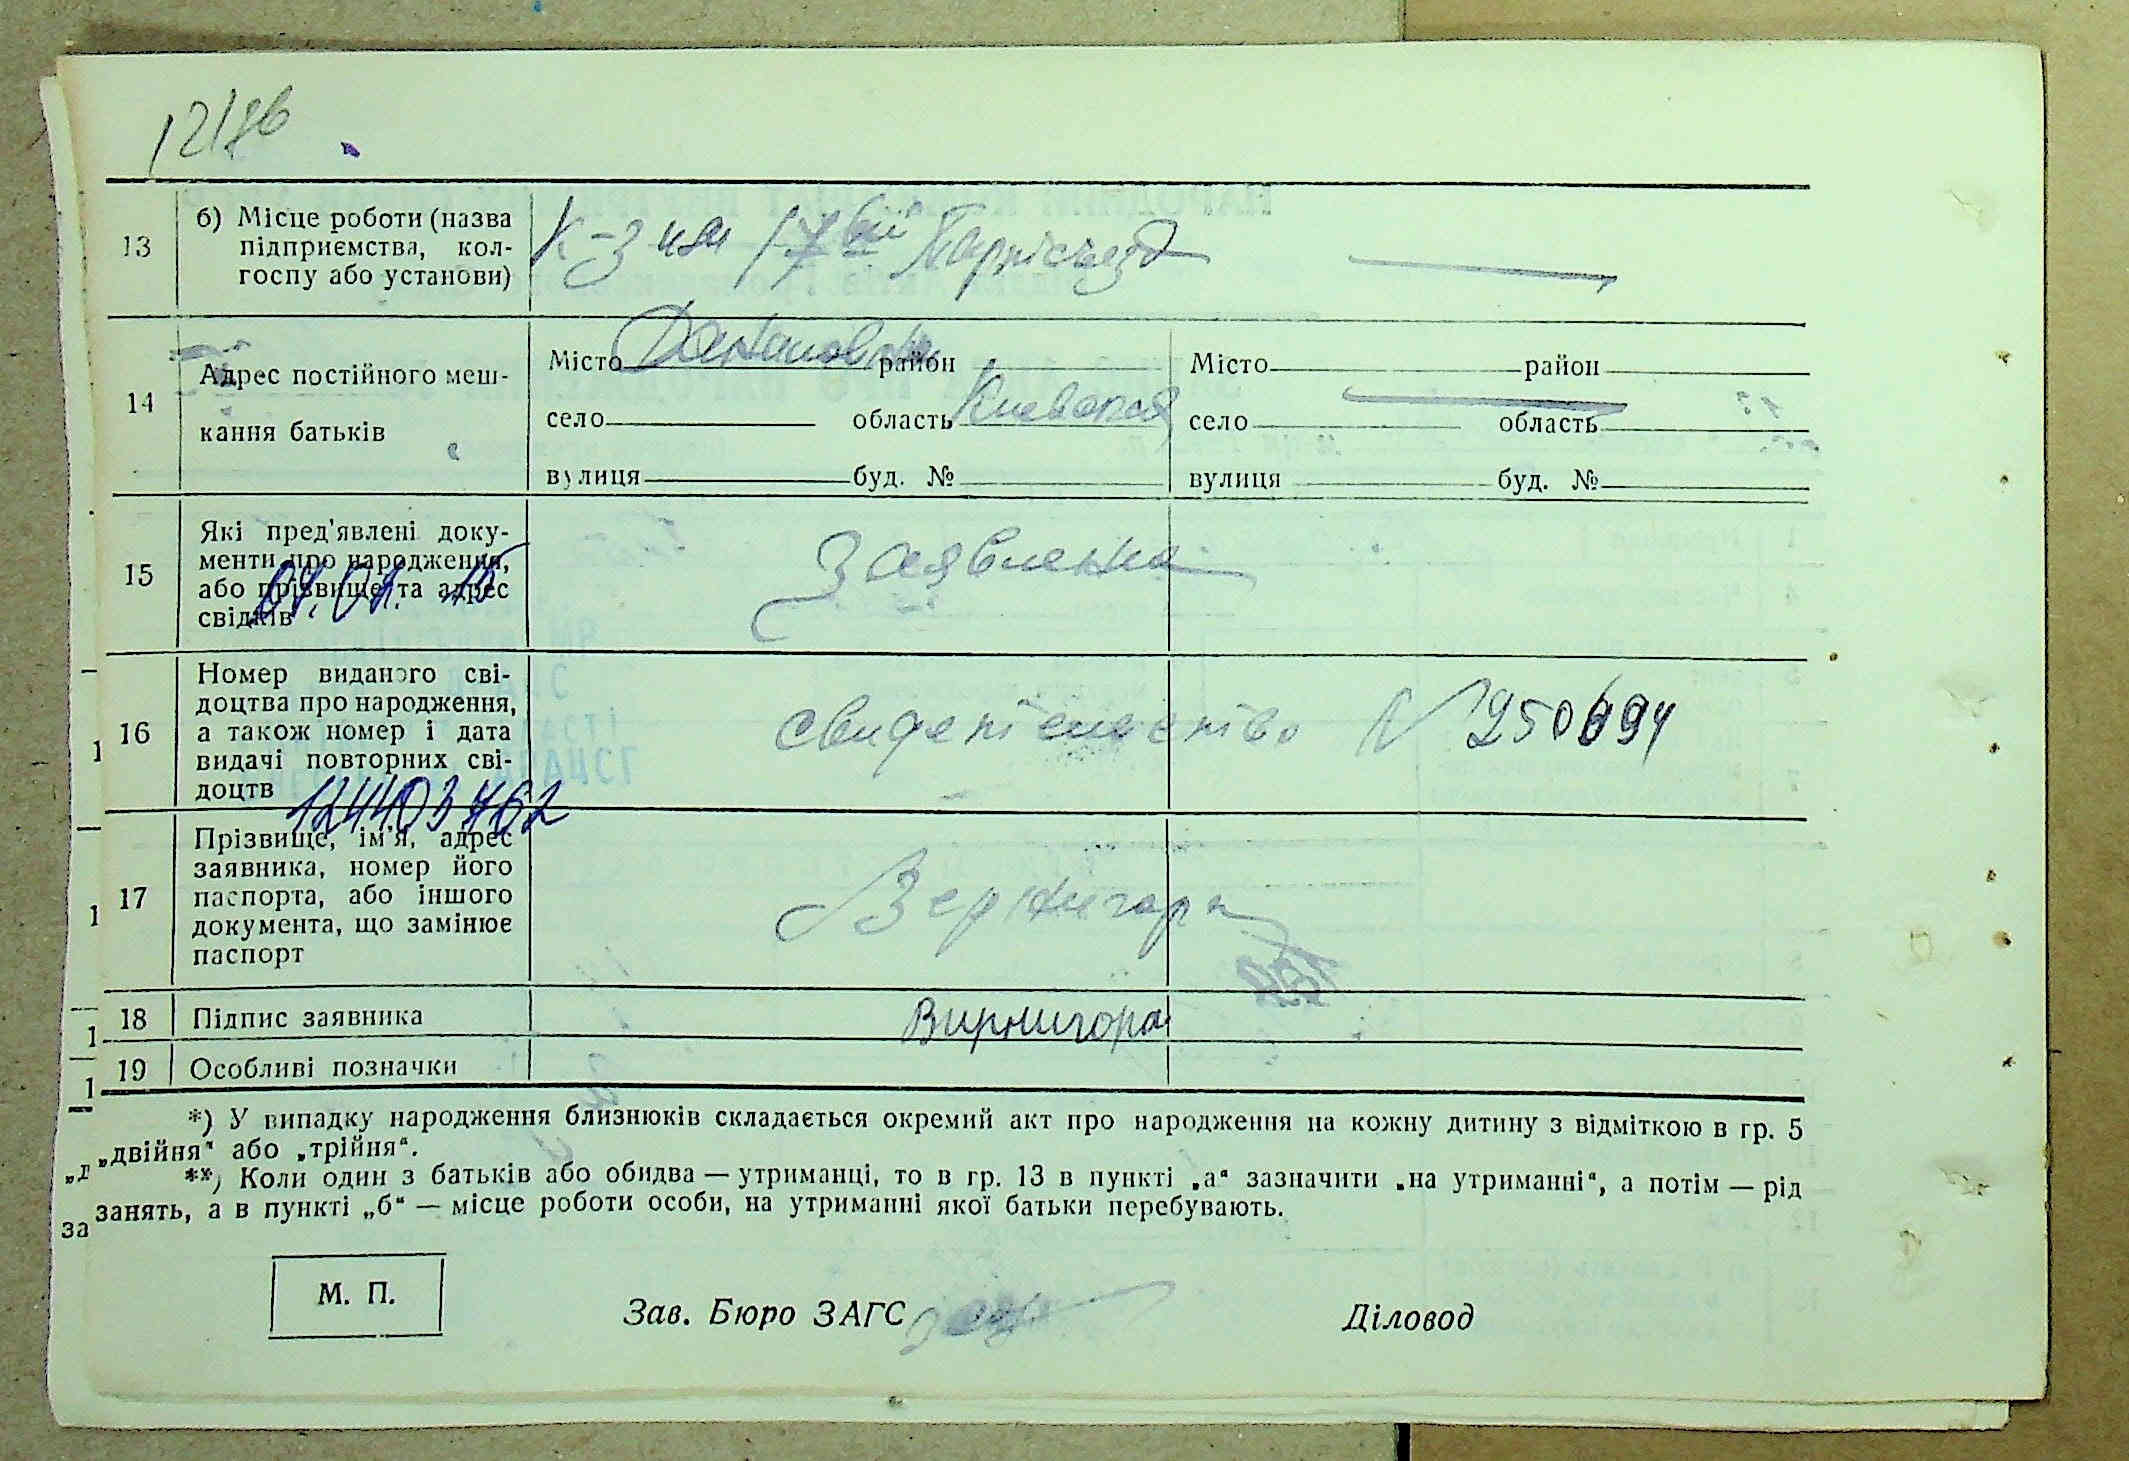 13 б) Місце роботи (назва
підприємства, кол-
госпу або установи)
К-з им 17 Партсъезд
14 Адрес постійного меш-
кання батьків
Місто Дакановка район
село область Киевская
вулиця буд. №
Місто район
село область
вулиця буд. №
15 Які пред'явлені доку-
менти про народження,
або прізвище та адрес
свідків
Заявлена
16 Номер виданого сві-
доцтва про народження,
а також номер і дата
видачі повторних сві-
доцтв
свидетельство №
124403762
17 Прізвище, ім'я, адрес
заявника, номер його
паспорта, або іншого
документа, що замінює
паспорт
Вернигора
18 Підпис заявника Вирнигора
19 Особливі позначки
*) У випадку народження близнюків складається окремий акт про народження на кожну дитину з відміткою в гр. 5
„двійня“ або „трійня“.
**) Коли один з батьків або обидва — утриманці, то в гр. 13 в пункті „а“ зазначити „на утриманні“, а потім — рід
занять, а в пункті „б“ — місце роботи особи, на утриманні якої батьки перебувають.
М. П.
Зав. Бюро ЗАГС Діловод